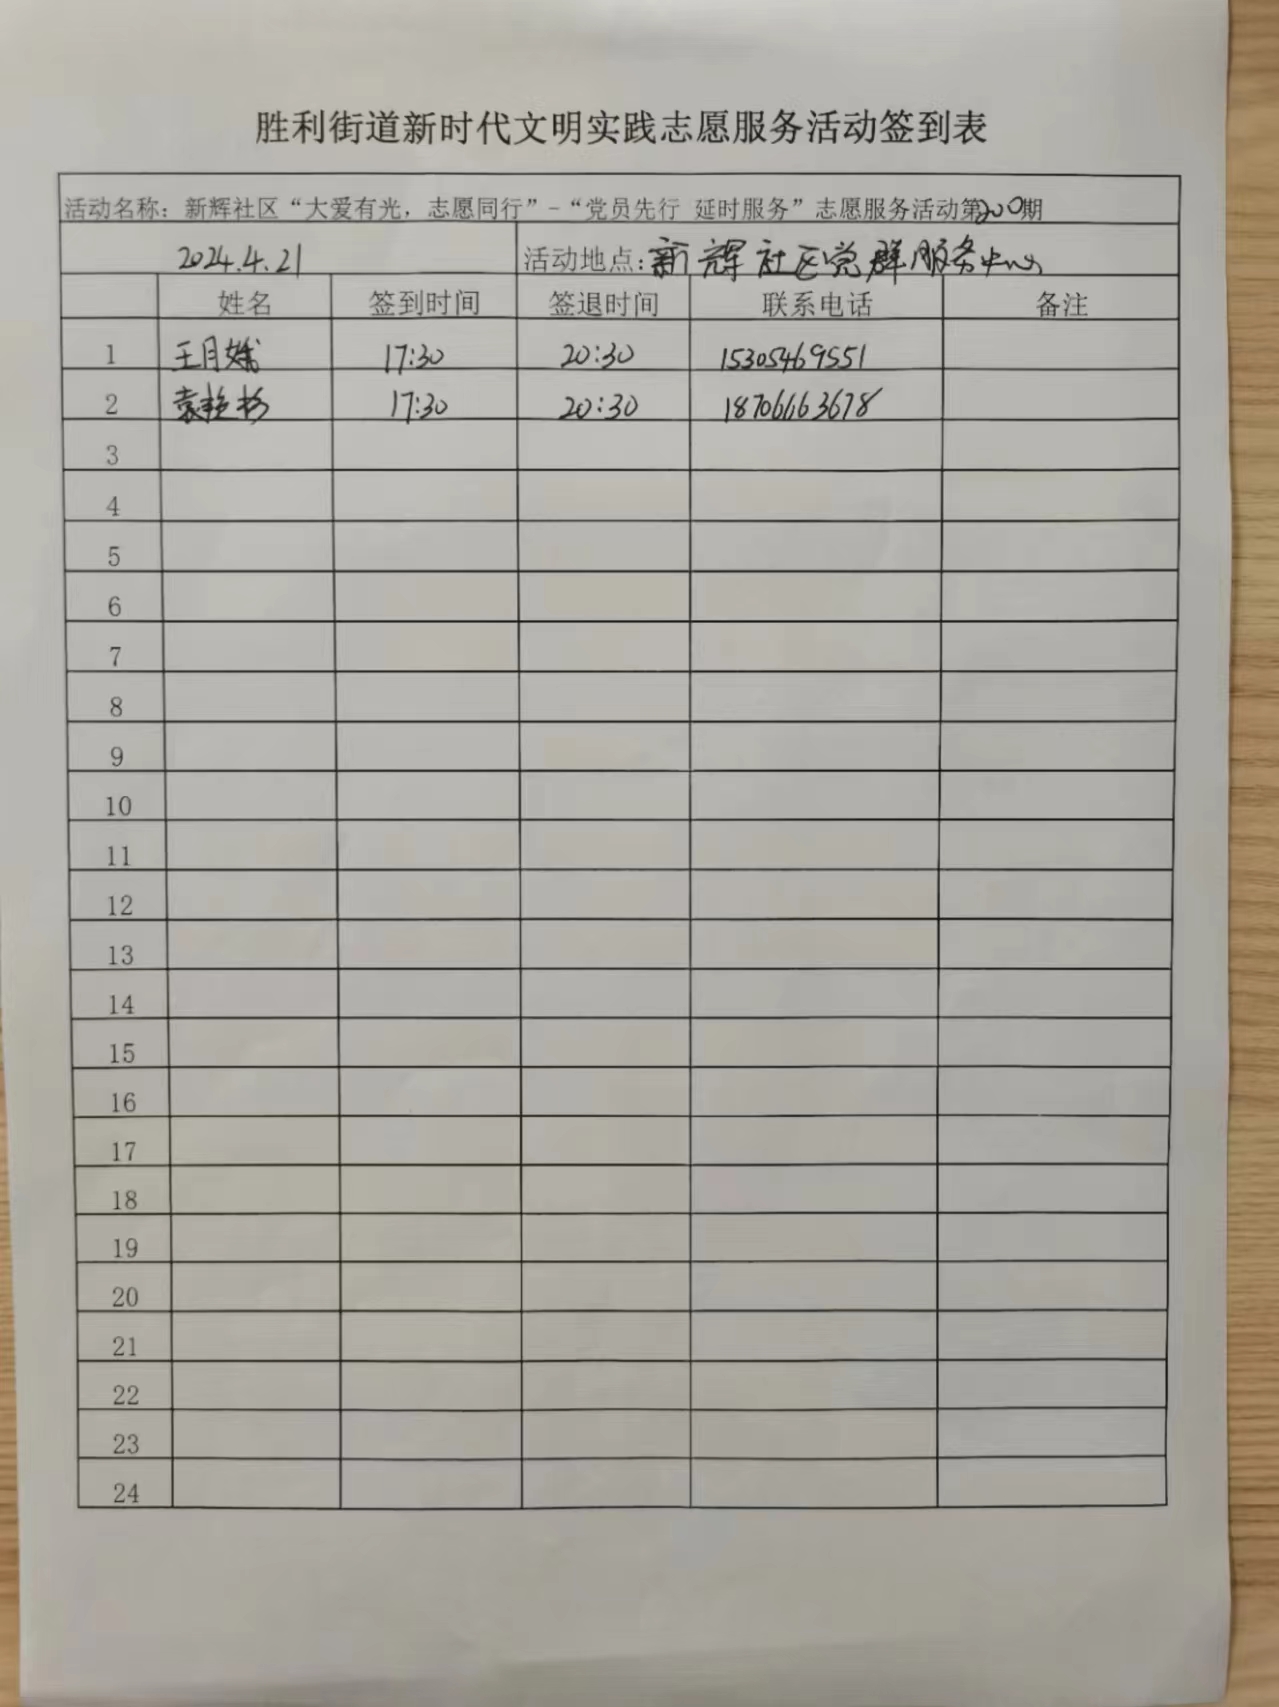 胜利街道新时代文明实践志愿服务活动签到表
活动名称：新辉社区“大爱有光，志愿同行”-“党员先行 延时服务”志愿服务活动第200期
2024.4.21 活动地点：新辉社区党群服务中心
姓名 签到时间 签退时间 联系电话 备注
1 王月娥 17:30 20:30 15305469551
2 袁艳杉 17:30 20:30 18706663678
3
4
5
6
7
8
9
10
11
12
13
14
15
16
17
18
19
20
21
22
23
24